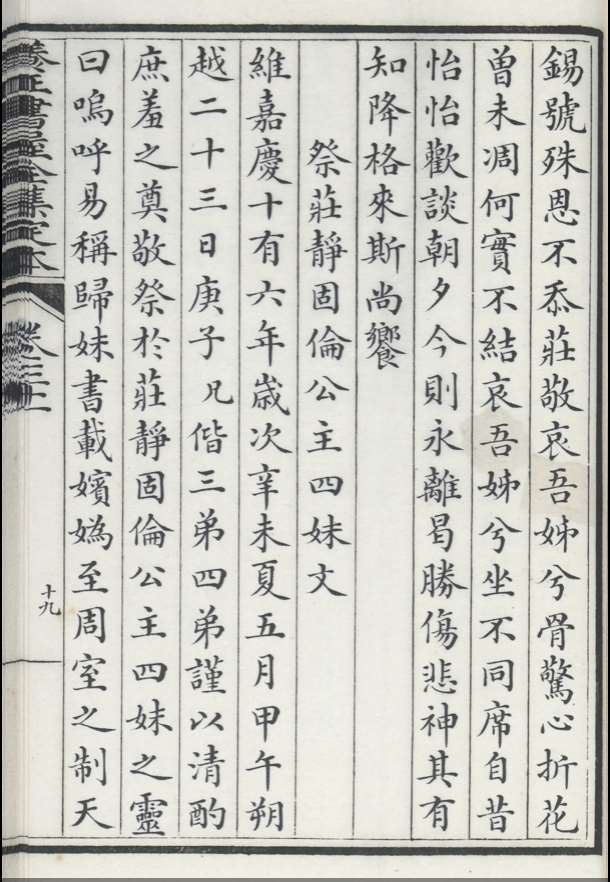 錫號殊恩不忝莊敬哀吾姊兮骨驚心折花
曾未凋何實不結哀吾姊兮坐不同席自昔
怡怡歡談朝夕今則永離曷勝傷悲神其有
知降格來斯尚饗
祭莊靜固倫公主四妹文
維嘉慶十有六年歲次辛未夏五月甲午朔
越二十三日庚子兄偕三弟四弟謹以清酌
庶羞之奠敬祭於莊靜固倫公主四妹之靈
曰嗚呼易稱歸妹書載嬪媯至周室之制天
養正書屋全集定本
十九